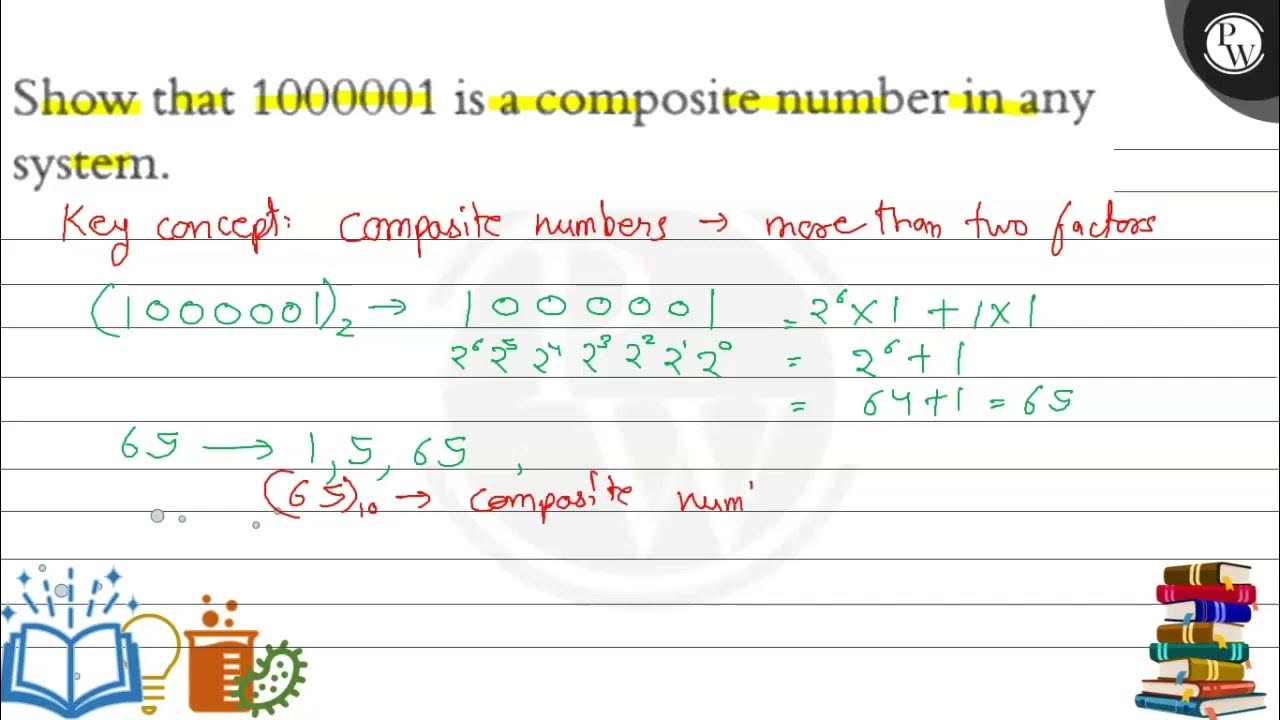 PW
Show that 1000001 is a composite number in any
system.
Key concept: Composite numbers → more than two factors
(1000001)₂ → 1 0 0 0 0 0 1 = 2⁶ × 1 + 1 × 1
2⁶ 2⁵ 2⁴ 2³ 2² 2¹ 2⁰ = 2⁶ + 1
= 64 + 1 = 65
65 → 1, 5, 65 ,
(65)₁₀ → composite num